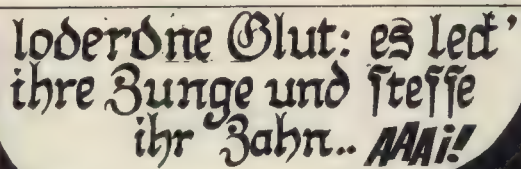 loderdne Glut: es leck'
ihre Zunge und fresse
ihr Zahn.. AAAi!